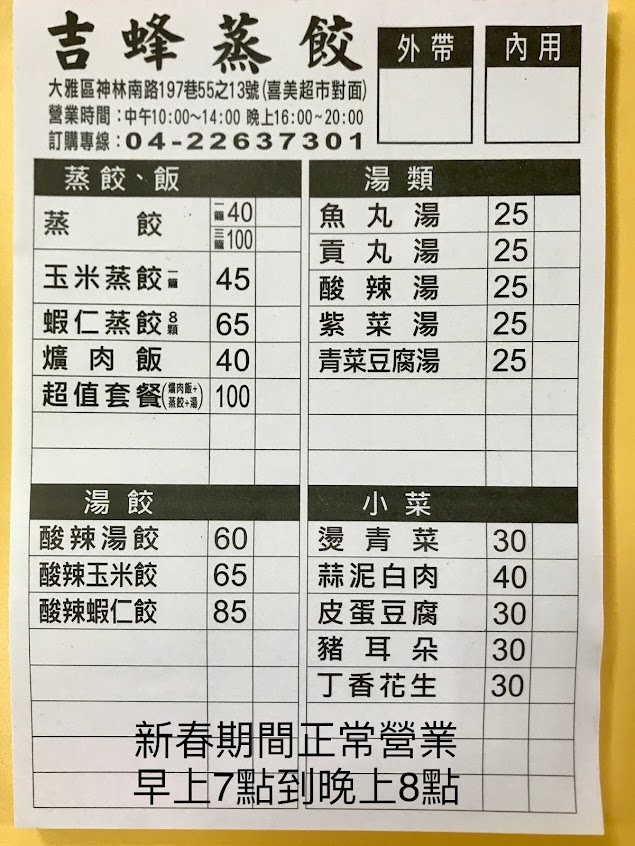 吉蜂蒸餃
外帶
內用
大雅區神林南路197巷55之13號(喜美超市對面)
營業時間：中午10:00～14:00 晚上16:00~20:00
訂購專線：04-22637301
蒸餃、飯
蒸餃 一籠 40
三籠 100
玉米蒸餃 一籠 45
蝦仁蒸餃 8顆 65
爌肉飯 40
超值套餐(爌肉飯+蒸餃+湯) 100
湯類
魚丸湯 25
貢丸湯 25
酸辣湯 25
紫菜湯 25
青菜豆腐湯 25
湯餃
酸辣湯餃 60
酸辣玉米餃 65
酸辣蝦仁餃 85
小菜
燙青菜 30
蒜泥白肉 40
皮蛋豆腐 30
豬耳朵 30
丁香花生 30
新春期間正常營業
早上7點到晚上8點